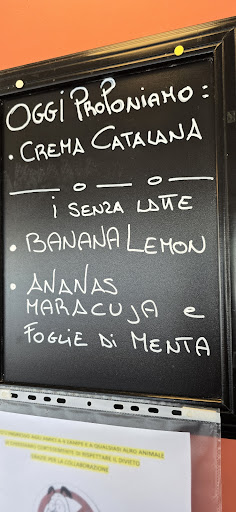 OGGI PROPONIAMO:
• CREMA CATALANA
___ o ___ o ___
i SENZA LATTE
• BANANA LEMON
• ANANAS
MARACUJA e
FOGLIE DI MENTA
E A QUALSIASI ALTRO ANIMALE
DI RISPETTARE IL DIVIETO
GRAZIE PER LA COLLABORAZIONE